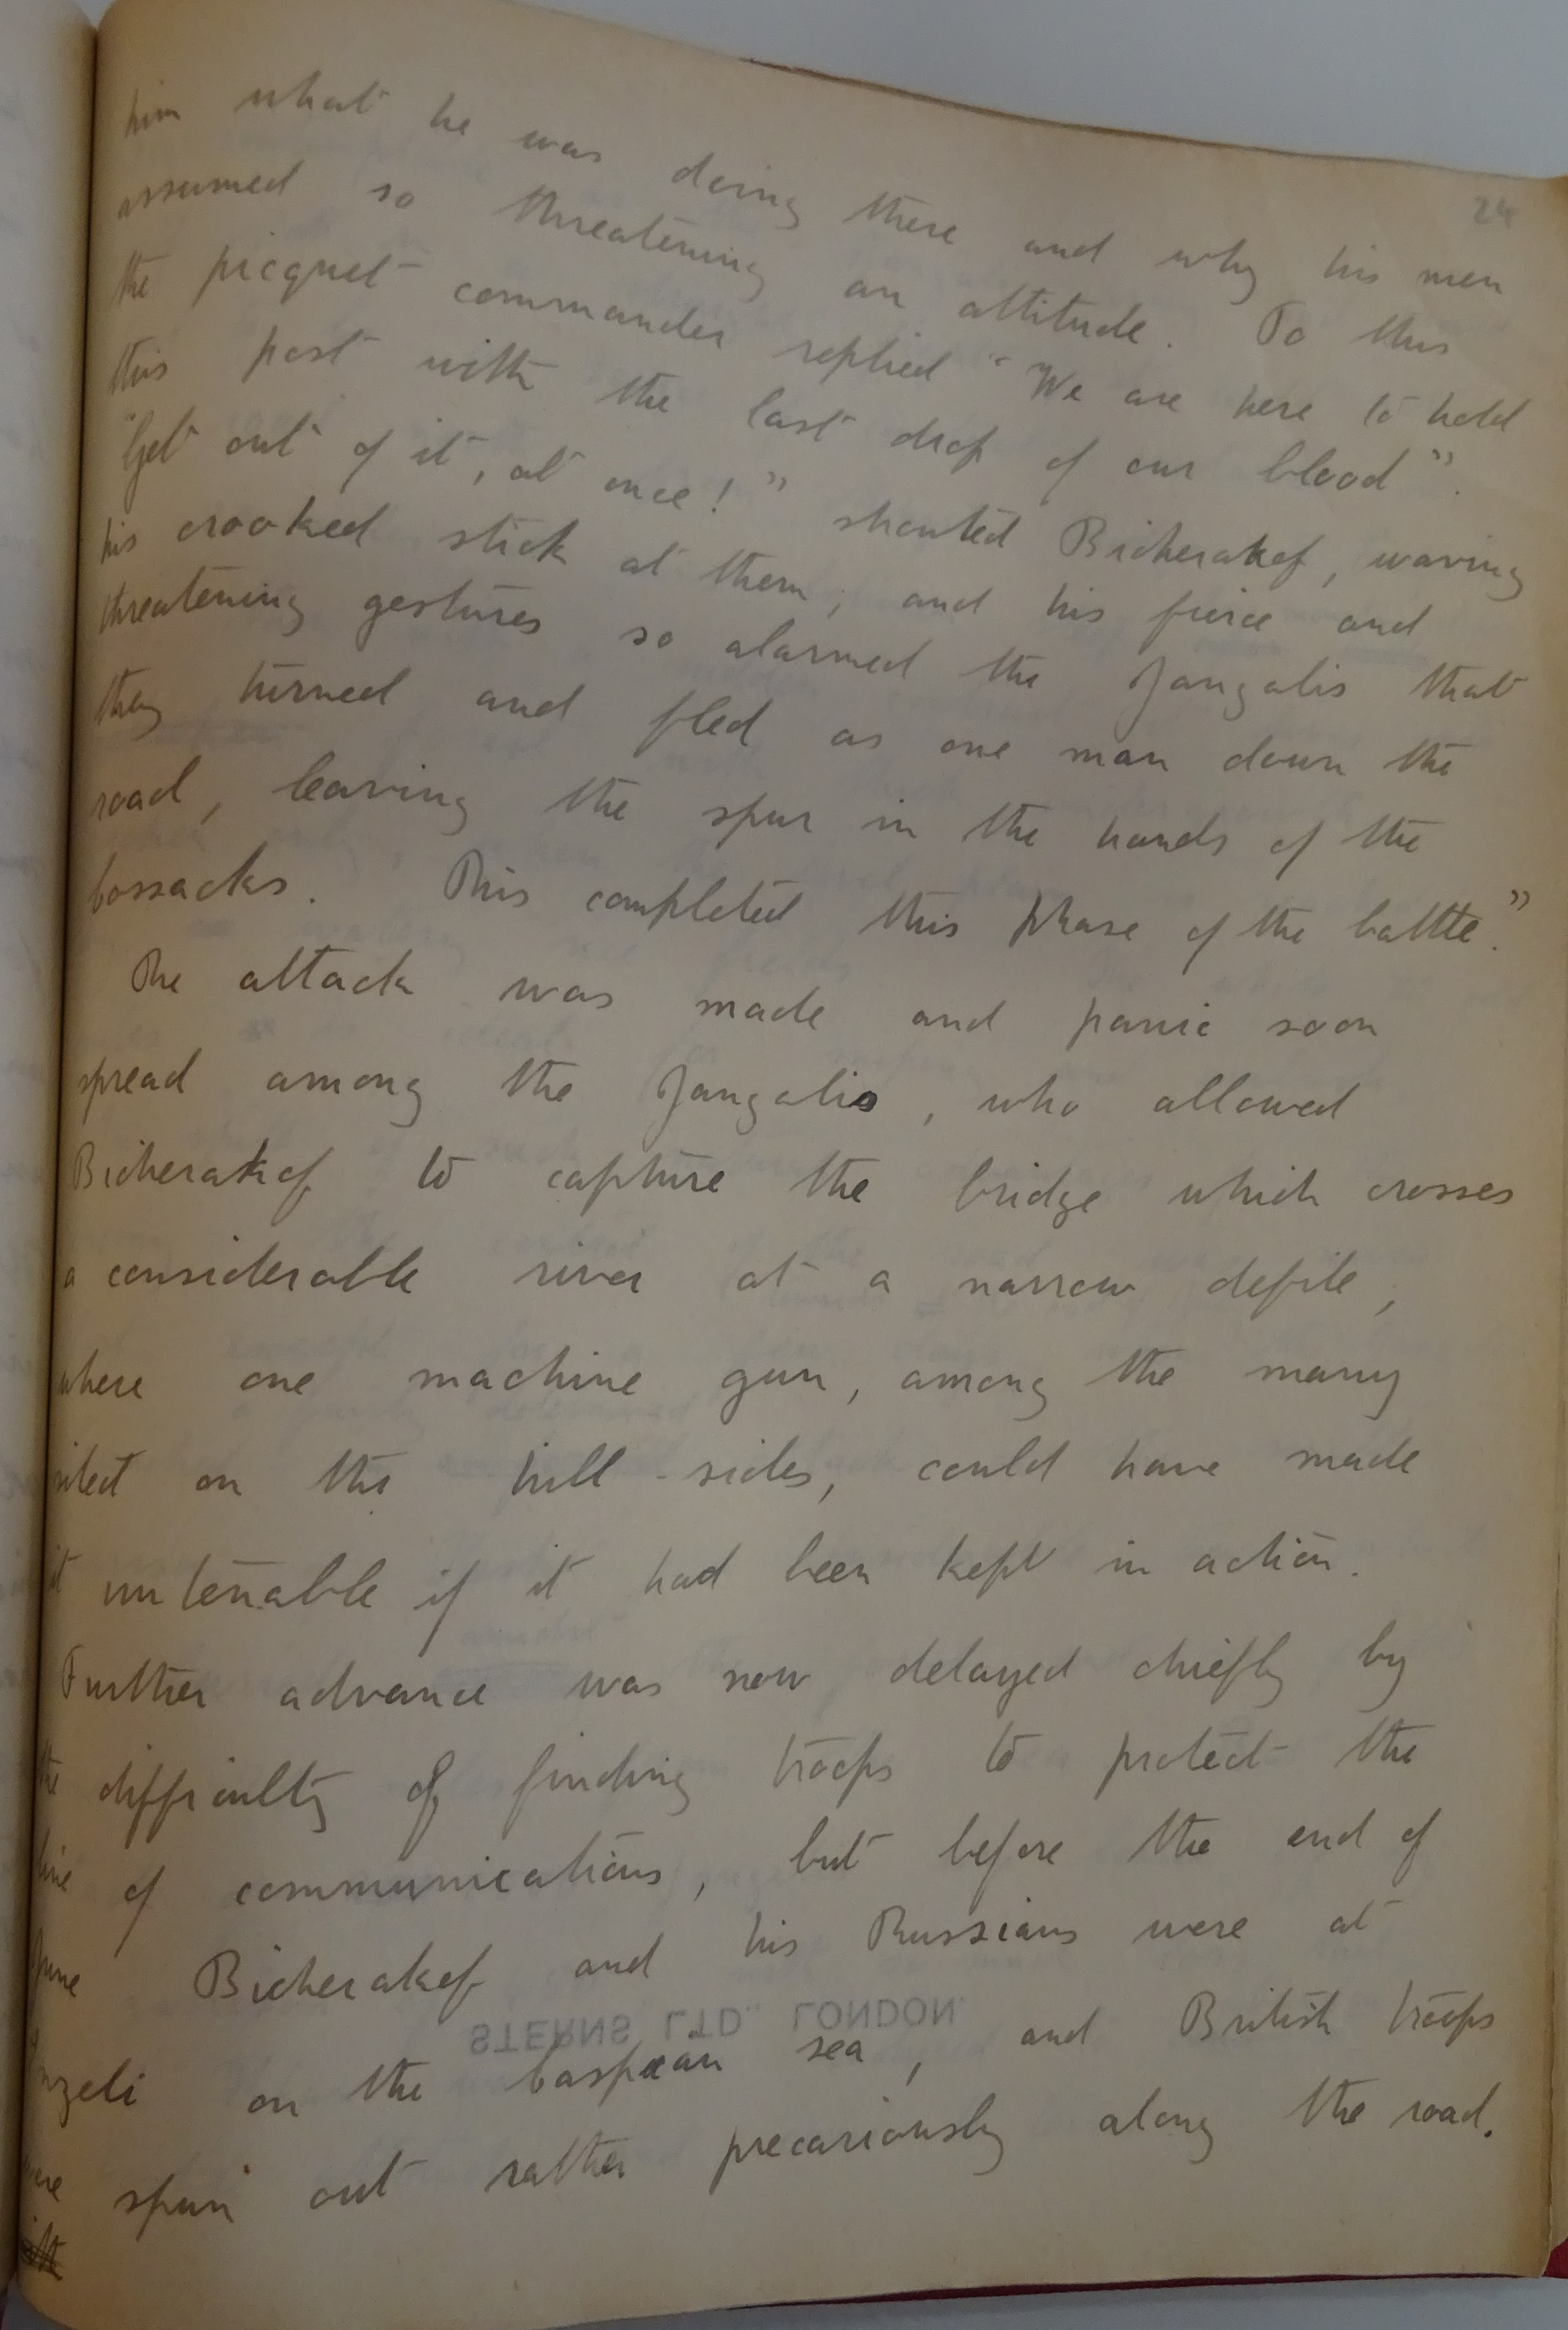 24
him what he was doing there and why his men
assumed so threatening an attitude. To this
the picquet commander replied "We are here to hold
this post with the last drop of our blood".
"Get out of it, at once!" shouted Bicherakof, waving
his crooked stick at them; and his fierce and
threatening gestures so alarmed the Jangalis that
they turned and fled as one man down the
road, leaving the spur in the hands of the
Cossacks. This completed this phase of the battle."
The attack was made and panic soon
spread among the Jangalis, who allowed
Bicherakof to capture the bridge which crosses
a considerable river at a narrow defile,
where one machine gun, among the many
on the hill-sides, could have made
it untenable if it had been kept in action.
Further advance was now delayed chiefly by
the difficulty of finding troops to protect the
line of communications, but before the end of
June Bicherakof and his Russians were at
STERNS LTD. LONDON.
nzeli on the Caspian sea, and British troops
were spun out rather precariously along the road.